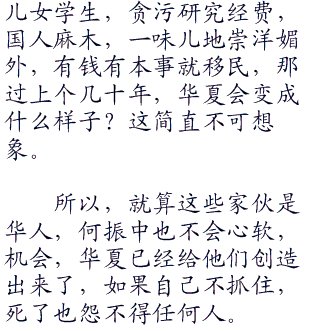 儿女学生，贪污研究经费，
国人麻木，一味儿地崇洋媚
外，有钱有本事就移民，那
过上个几十年，华夏会变成
什么样子？这简直不可想
象。
所以，就算这些家伙是
华人，何振中也不会心软，
机会，华夏已经给他们创造
出来了，如果自己不抓住，
死了也怨不得任何人。